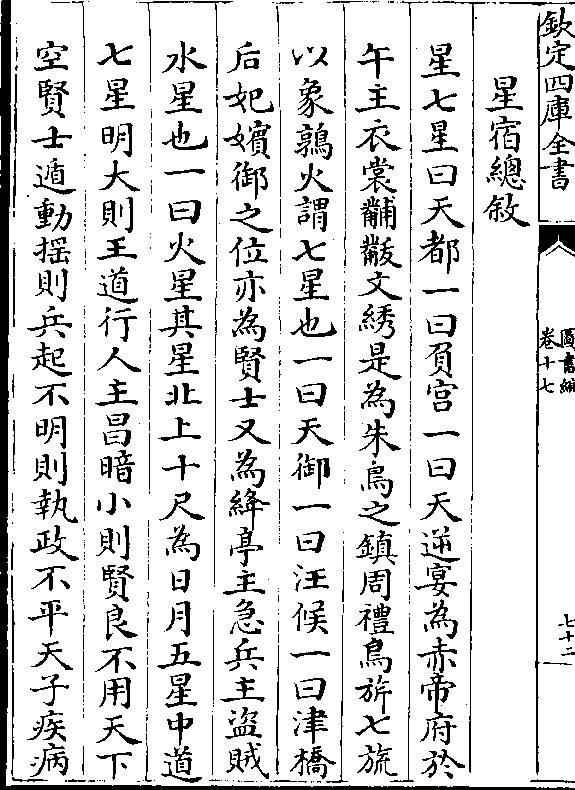 欽定四庫全書
圖書編
卷十七
七十二
星宿總敘
星七星曰天都一曰員宮一曰天逆宴為赤帝府於
午主衣裳黼黻文綉是為朱鳥之鎮周禮鳥旂七旒
以象鶉火謂七星也一曰天御一曰汪候一曰津橋
后妃嬪御之位亦為賢士又為絳亭主急兵主盜賊
水星也一曰火星其星北上十尺為日月五星中道
七星明大則王道行人主昌暗小則賢良不用天下
空賢士遁動揺則兵起不明則執政不平天子疾病